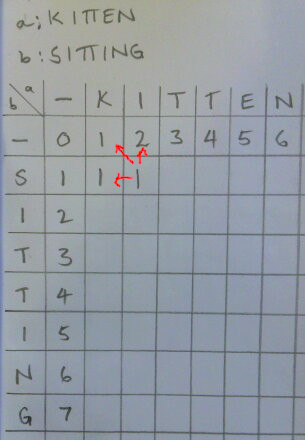 a: KITTEN
b: SITTING
b a - K I T T E N
- 0 1 2 3 4 5 6
S 1 1 1
I 2
T 3
T 4
I 5
N 6
G 7